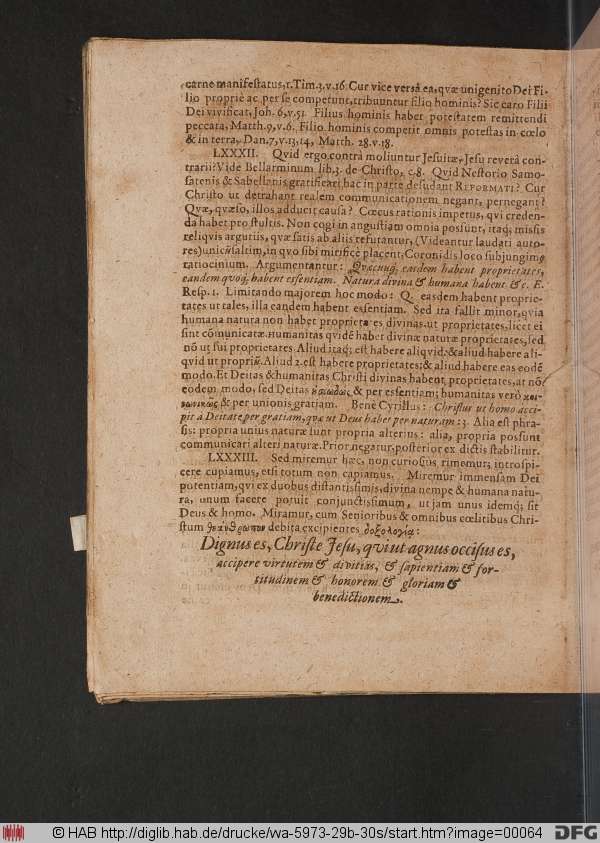 carne manifestatus, 1. Tim. 3. v. 16. Cur vice versâ ea, quæ unigenito Dei Fi-
lio propriè ac per se competunt, tribuuntur filio hominis? Sic caro Filii
Dei vivificat, Joh. 6, v. 51. Filius hominis habet potestatem remittendi
peccata, Matth. 9, v. 6. Filio hominis competit omnis potestas in cœlo
& in terra, Dan. 7, v. 13, 14, Matth. 28. v. 18.
LXXXII. Qvid ergo contrà moliuntur Jesuitæ, Jesu reverà con-
trarii? Vide Bellarminum lib. 3. de Christo, c. 8. Qvid Nestorio Samo-
satenis & Sabellianis gratificari hac in parte desudant REFORMATI? Cur
Christo ut detrahant realem communicationem negant, pernegant?
Qvæ, qvæso, illos adducit causa? Cœcus rationis impetus, qvi creden-
da habet pro stultis. Non cogi in angustiam omnia possunt, itaq; missis
reliqvis argutiis, qvæ satis ab aliis refutantur, (Videantur laudati auto-
res) unicũ saltim, in qvo sibi mirificè placent, Coronidis loco subjungimꝰ
ratiocinium. Argumentantur: Qvæcunq; easdem habent proprietates,
eandem quoq; habent essentiam. Natura divina & humana habent &c. E.
Resp. 1. Limitando majorem hoc modo: Q. easdem habent proprie-
tates ut tales, illa eandem habent essentiam. Sed ita fallit minor, qvia
humana natura non habet proprietates divinas, ut proprietates, licet ei
sint cõmunicatæ. Humanitas qvidẽ habet divinæ naturæ proprietates, sed
nõ ut sui proprietates. Aliud itaq; est habere aliqvid: & aliud habere a-
liqvid ut propriũ. Aliud 2. est habere proprietates; & aliud habere eas eodẽ
modo. Et Deitas & humanitas Christi divinas habent proprietates, at nõ
eodem modo, sed Deitas ὐσιωδῶς & per essentiam; humanitas verò κοι-
νωνικῶς & per unionis gratiam. Benè Cyrillus: Christus ut homo acci-
pit à Deitate per gratiam, qvæ ut Deus habet per naturam: 3. Alia est phra-
sis: propria unius naturæ sunt propria alterius: alia, propria possunt
communicari alteri naturæ. Prior negatur, posterior ex dictis stabilitur.
LXXXIII. Sed miremur hæc, non curiosiùs rimemur; introspi-
cere cupiamus, etsi totum non capiamus. Miremur immensam Dei
potentiam, qvi ex duobus distantissimis, divina nempe & humana natu-
ra, unum facere potuit conjunctissimum, ut jam unus idemq; sit
Deus & homo. Miramur, cum Senioribus & omnibus cœlitibus Chri-
stum θεάνθρωπον debita excipientes δοξολογίᾳ:
Dignus es, Christe Jesu, qvi ut agnus occisus es,
accipere virtutem & divitias, & sapientiam & for-
titudinem & honorem & gloriam &
benedictionem.
© HAB http://diglib.hab.de/drucke/wa-5973-29b-30s/start.htm?image=00064
DFG